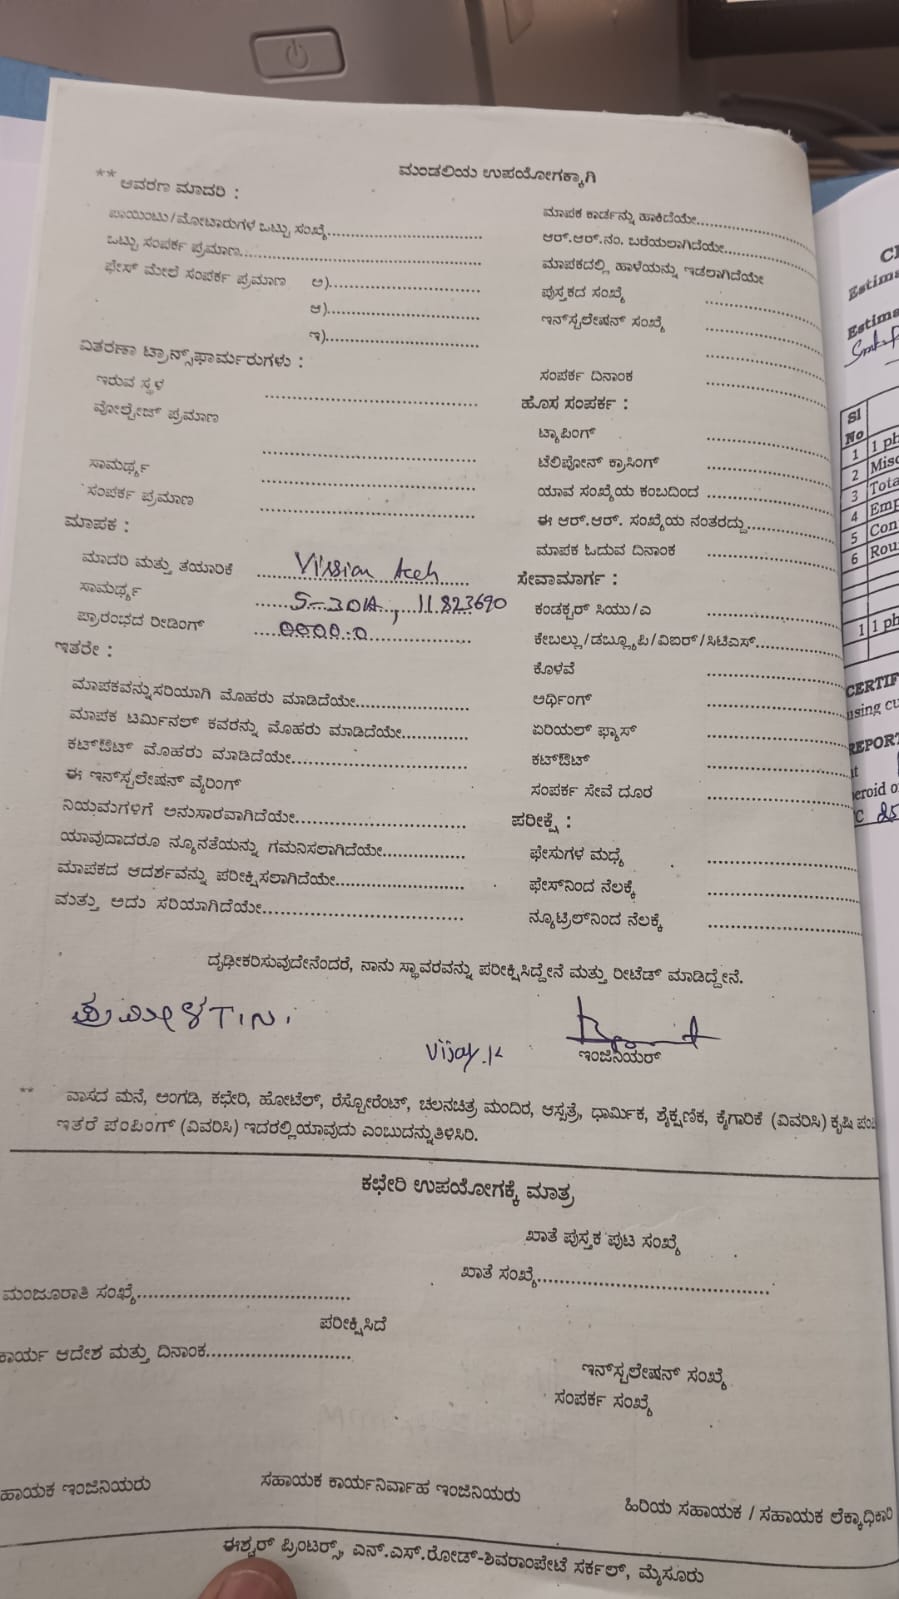 ಮಂಡಲಿಯ ಉಪಯೋಗಕ್ಕಾಗಿ
** ಆವರಣ ಮಾದರಿ :
ಪಾಯಿಂಟು/ಮೋಟಾರುಗಳ ಒಟ್ಟು ಸಂಖ್ಯೆ
ಒಟ್ಟು ಸಂಪರ್ಕ ಪ್ರಮಾಣ
ಫೇಸ್ ಮೇಲೆ ಸಂಪರ್ಕ ಪ್ರಮಾಣ ಅ)
ಆ)
ಇ)
ವಿತರಣಾ ಟ್ರಾನ್ಸ್‌ಫಾರ್ಮರುಗಳು :
ಇರುವ ಸ್ಥಳ
ವೋಲ್ಟೇಜ್ ಪ್ರಮಾಣ
ಸಾಮರ್ಥ್ಯ
ಸಂಪರ್ಕ ಪ್ರಮಾಣ
ಮಾಪಕ :
ಮಾದರಿ ಮತ್ತು ತಯಾರಿಕೆ
ಸಾಮರ್ಥ್ಯ 5-30A, 11823690
ಪ್ರಾರಂಭದ ರೀಡಿಂಗ್ 0000.0
ಇತರೇ :
ಮಾಪಕವನ್ನುಸರಿಯಾಗಿ ಮೊಹರು ಮಾಡಿದೆಯೇ
ಮಾಪಕ ಟರ್ಮಿನಲ್ ಕವರನ್ನು ಮೊಹರು ಮಾಡಿದೆಯೇ
ಕಟ್‌ಔಟ್ ಮೊಹರು ಮಾಡಿದೆಯೇ
ಈ ಇನ್‌ಸ್ಟಲೇಷನ್ ವೈರಿಂಗ್
ನಿಯಮಗಳಿಗೆ ಅನುಸಾರವಾಗಿದೆಯೇ
ಯಾವುದಾದರೂ ನ್ಯೂನತೆಯನ್ನು ಗಮನಿಸಲಾಗಿದೆಯೇ
ಮಾಪಕದ ಆದರ್ಶವನ್ನು ಪರೀಕ್ಷಿಸಲಾಗಿದೆಯೇ
ಮತ್ತು ಅದು ಸರಿಯಾಗಿದೆಯೇ
ಮಾಪಕ ಕಾರ್ಡನ್ನು ಹಾಕಿದೆಯೇ
ಆರ್.ಆರ್.ನಂ. ಬರೆಯಲಾಗಿದೆಯೇ
ಮಾಪಕದಲ್ಲಿ ಹಾಳೆಯನ್ನು ಇಡಲಾಗಿದೆಯೇ
ಪುಸ್ತಕದ ಸಂಖ್ಯೆ
ಇನ್‌ಸ್ಟಲೇಷನ್ ಸಂಖ್ಯೆ
ಸಂಪರ್ಕ ದಿನಾಂಕ
ಹೊಸ ಸಂಪರ್ಕ :
ಟ್ಯಾಪಿಂಗ್
ಟೆಲಿಪೋನ್ ಕ್ರಾಸಿಂಗ್
ಯಾವ ಸಂಖ್ಯೆಯ ಕಂಬದಿಂದ
ಈ ಆರ್.ಆರ್. ಸಂಖ್ಯೆಯ ನಂತರದ್ದು
ಮಾಪಕ ಓದುವ ದಿನಾಂಕ
ಸೇವಾಮಾರ್ಗ :
ಕಂಡಕ್ಟರ್ ಸಿಯು/ಎ
ಕೇಬಲ್ಲು/ಡಬ್ಲ್ಯೂಪಿ/ವಿಐಆರ್/ಸಿಟಿಎಸ್
ಕೊಳವೆ
ಅರ್ಥಿಂಗ್
ಏರಿಯಲ್ ಫ್ಯೂಸ್
ಕಟ್‌ಔಟ್
ಸಂಪರ್ಕ ಸೇವೆ ದೂರ
ಪರೀಕ್ಷೆ :
ಫೇಸುಗಳ ಮಧ್ಯೆ
ಫೇಸ್‌ನಿಂದ ನೆಲಕ್ಕೆ
ನ್ಯೂಟ್ರಿಲ್‌ನಿಂದ ನೆಲಕ್ಕೆ
ದೃಢೀಕರಿಸುವುದೇನೆಂದರೆ, ನಾನು ಸ್ಥಾವರವನ್ನು ಪರೀಕ್ಷಿಸಿದ್ದೇನೆ ಮತ್ತು ರೀಟೆಡ್ ಮಾಡಿದ್ದೇನೆ.
Vijay.K
ಇಂಜಿನಿಯರ್
** ವಾಸದ ಮನೆ, ಅಂಗಡಿ, ಕಛೇರಿ, ಹೋಟೆಲ್, ರೆಸ್ಟೋರೆಂಟ್, ಚಲನಚಿತ್ರ ಮಂದಿರ, ಆಸ್ಪತ್ರೆ, ಧಾರ್ಮಿಕ, ಶೈಕ್ಷಣಿಕ, ಕೈಗಾರಿಕೆ (ವಿವರಿಸಿ) ಕೃಷಿ
ಇತರೆ ಪಂಪಿಂಗ್ (ವಿವರಿಸಿ) ಇದರಲ್ಲಿಯಾವುದು ಎಂಬುದನ್ನುತಿಳಿಸಿರಿ.
ಕಛೇರಿ ಉಪಯೋಗಕ್ಕೆ ಮಾತ್ರ
ಖಾತೆ ಪುಸ್ತಕ ಪುಟ ಸಂಖ್ಯೆ
ಖಾತೆ ಸಂಖ್ಯೆ
ಮಂಜೂರಾತಿ ಸಂಖ್ಯೆ
ಪರೀಕ್ಷಿಸಿದೆ
ಕಾರ್ಯ ಆದೇಶ ಮತ್ತು ದಿನಾಂಕ
ಇನ್‌ಸ್ಟಲೇಷನ್ ಸಂಖ್ಯೆ
ಸಂಪರ್ಕ ಸಂಖ್ಯೆ
ಹಾಯಕ ಇಂಜಿನಿಯರು
ಸಹಾಯಕ ಕಾರ್ಯನಿರ್ವಾಹ ಇಂಜಿನಿಯರು
ಹಿರಿಯ ಸಹಾಯಕ / ಸಹಾಯಕ ಲೆಕ್ಕಾಧಿಕಾರಿ
ಈಶ್ವರ್ ಪ್ರಿಂಟರ್ಸ್, ಎನ್.ಎಸ್.ರೋಡ್-ಶಿವರಾಂಪೇಟೆ ಸರ್ಕಲ್, ಮೈಸೂರು
Sl
No
1 1 ph
2 Misc
3 Tota
4 Emp
5 Con
6 Rou
1 1 ph
CERTIF
using cu
REPORT